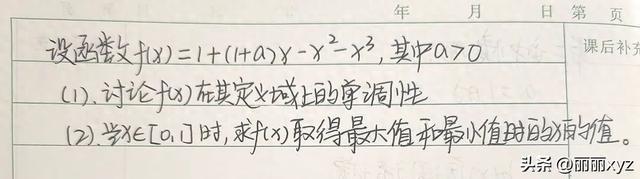 年 月 日 第 页
设函数f(x)=1+(1+a)x-x²-x³,其中a>0
课后补充
(1).讨论f(x)在其定义域上的单调性
(2).当x∈[0,1]时,求f(x)取得最大值和最小值时的x的值。
头条@丽丽xyz